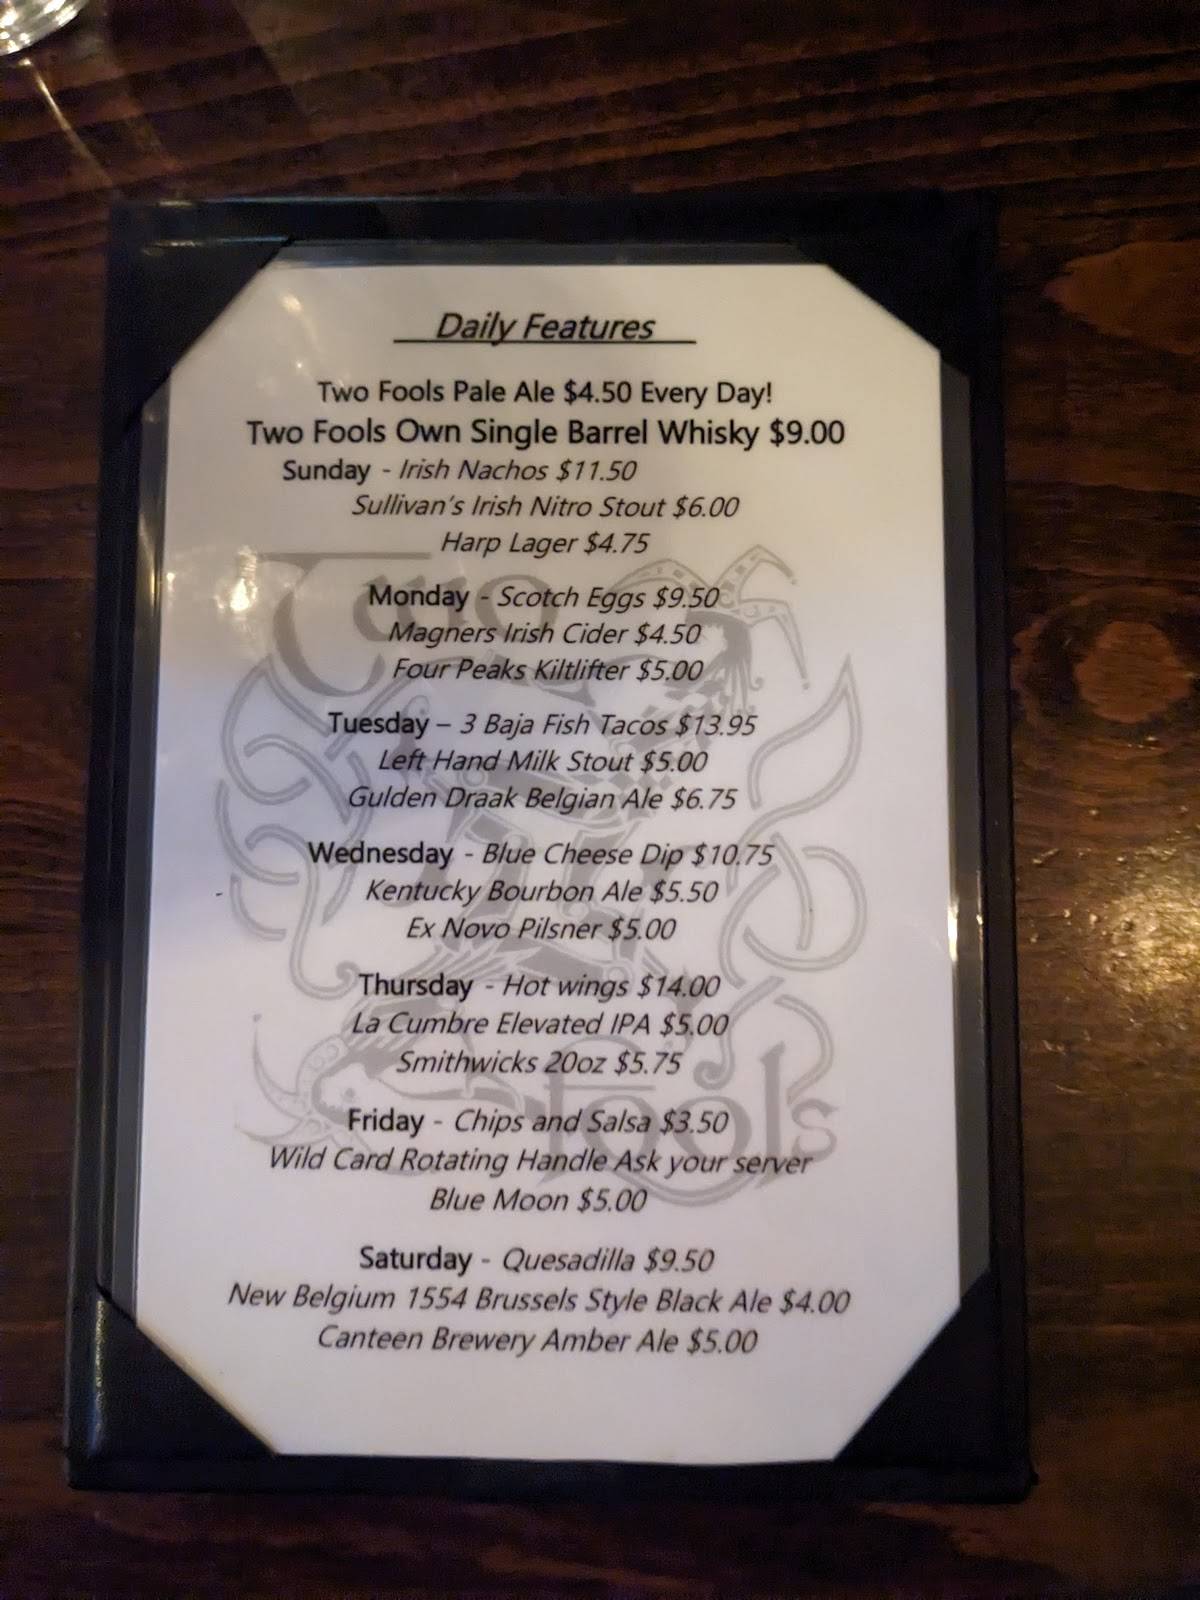 Daily Features
Two Fools Pale Ale $4.50 Every Day!
Two Fools Own Single Barrel Whisky $9.00
Sunday - Irish Nachos $11.50
Sullivan's Irish Nitro Stout $6.00
Harp Lager $4.75
Two
Monday - Scotch Eggs $9.50
Magners Irish Cider $4.50
Four Peaks Kiltlifter $5.00
Tuesday – 3 Baja Fish Tacos $13.95
Left Hand Milk Stout $5.00
Gulden Draak Belgian Ale $6.75
Wednesday - Blue Cheese Dip $10.75
Kentucky Bourbon Ale $5.50
Ex Novo Pilsner $5.00
Thursday - Hot wings $14.00
La Cumbre Elevated IPA $5.00
Smithwicks 20oz $5.75
Fools
Friday - Chips and Salsa $3.50
Wild Card Rotating Handle Ask your server
Blue Moon $5.00
Saturday - Quesadilla $9.50
New Belgium 1554 Brussels Style Black Ale $4.00
Canteen Brewery Amber Ale $5.00